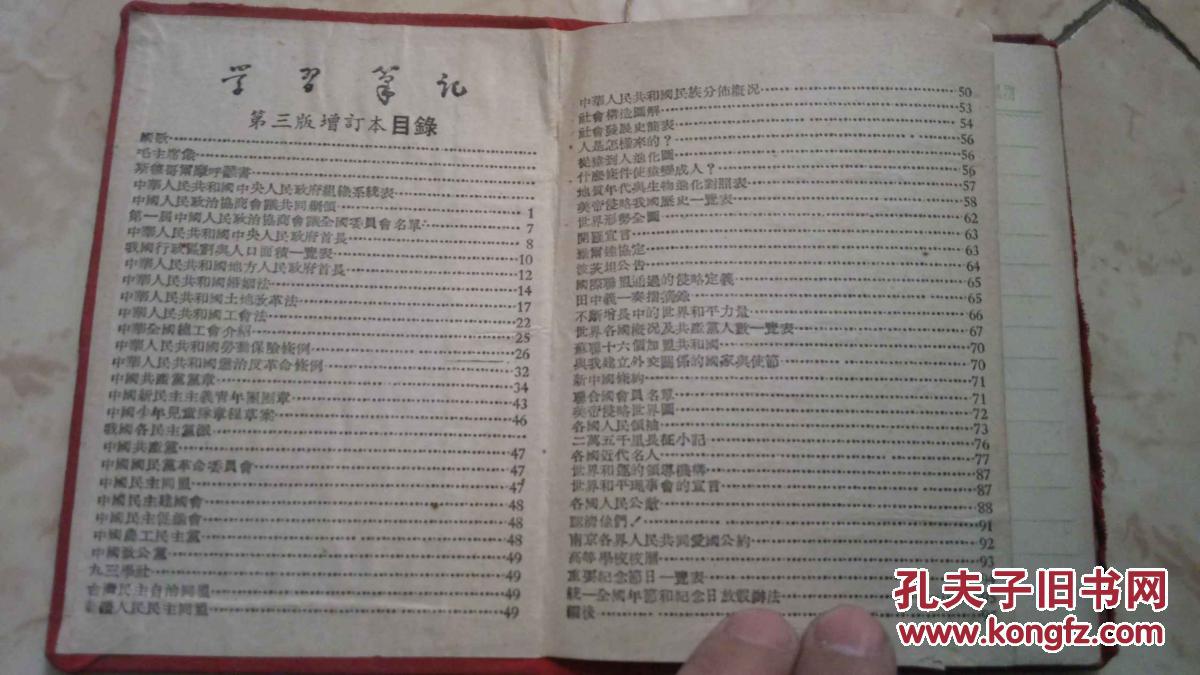 学習筆記
第三版增訂本目錄
國歌
毛主席像
斯德哥爾摩呼籲書
中華人民共和國中央人民政府組織系統表
中國人民政治協商會議共同綱領 1
第一屆中國人民政治協商會議全國委員會名單 7
中華人民共和國中央人民政府首長 8
我國行政區劃與人口面積一覽表 10
中華人民共和國地方人民政府首長 12
中華人民共和國婚姻法 14
中華人民共和國土地改革法 17
中華人民共和國工會法 22
中華全國總工會介紹 25
中華人民共和國勞動保險條例 26
中華人民共和國懲治反革命條例 32
中國共產黨黨章 34
中國新民主主義青年團團章 43
中國少年兒童隊章程草案 46
我國各民主黨派
中國共產黨 47
中國國民黨革命委員會 47
中國民主同盟 47
中國民主建國會 48
中國民主促進會 48
中國農工民主黨 48
中國致公黨 49
九三學社 49
台灣民主自治同盟 49
人民民主同盟 49
中華人民共和國民族分佈概況 50
社會構造圖解 53
社會發展史簡表 54
人是怎樣來的？ 56
從猿到人進化圖 56
什麼條件使猿變成人？ 56
地質年代與生物進化對照表 57
美帝侵略我國歷史一覽表 58
世界形勢全圖 62
開羅宣言 63
雅爾達協定 63
波茨坦公告 64
國際聯盟通過的侵略定義 65
田中義一奏摺摘錄 65
不斷增長中的世界和平力量 66
世界各國概況及共產黨人數一覽表 67
蘇聯十六個加盟共和國 70
與我建立外交關係的國家與使節 70
新中國條約 71
聯合國會員名單 71
美帝侵略世界圖 72
各國人民領袖 73
二萬五千里長征小記 76
各國近代名人 77
世界和運的領導機構 87
世界和平理事會的宣言 87
各國人民公敵 88
認清他們！ 91
南京各界人民共同愛國公約 92
高等學校校曆 93
重要紀念節日一覽表
統一全國年節和紀念日放假辦法
編後
孔夫子旧书网
www.kongfz.com